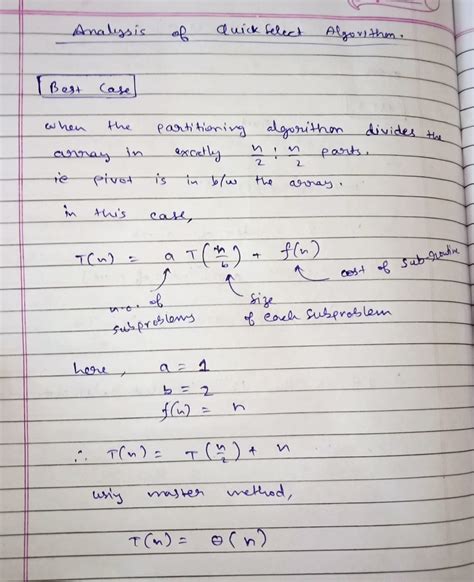 Analysis of Quick Select Algorithm.
Best Case
when the partitioning algorithm divides the
array in exactly n/2 : n/2 parts.
ie pivot is in b/w the array.
in this case,
T(n) = a T(n/b) + f(n)
cost of sub-routine
n.o. of subproblems
size of each subproblem
here, a = 1
b = 2
f(n) = n
∴ T(n) = T(n/2) + n
using master method,
T(n) = Θ(n)